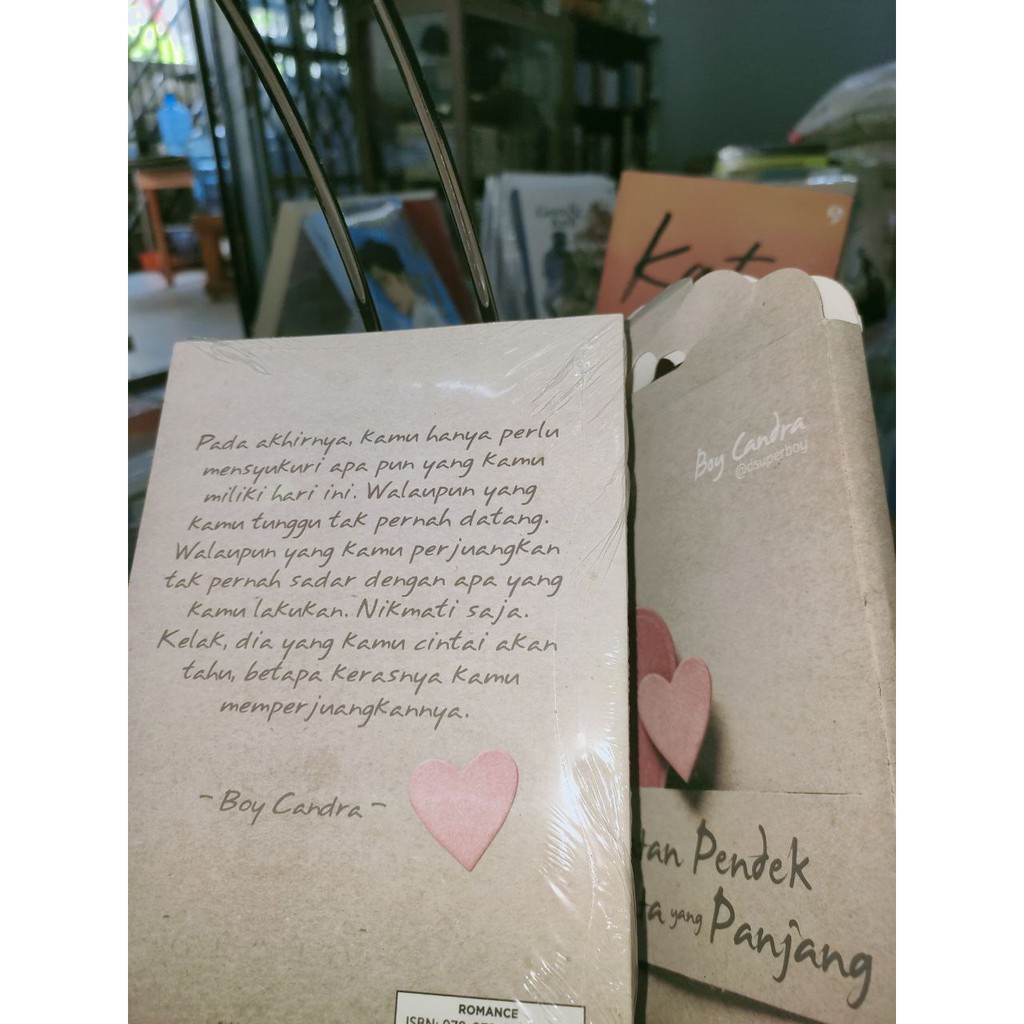 Pada akhirnya, kamu hanya perlu
mensyukuri apa pun yang kamu
miliki hari ini. Walaupun yang
kamu tunggu tak pernah datang.
Walaupun yang kamu perjuangkan
tak pernah sadar dengan apa yang
kamu lakukan. Nikmati saja.
Kelak, dia yang kamu cintai akan
tahu, betapa kerasnya kamu
memperjuangkannya.
- Boy Candra -
ROMANCE
Boy Candra
@dsuperboy
Pendek
yang Panjang